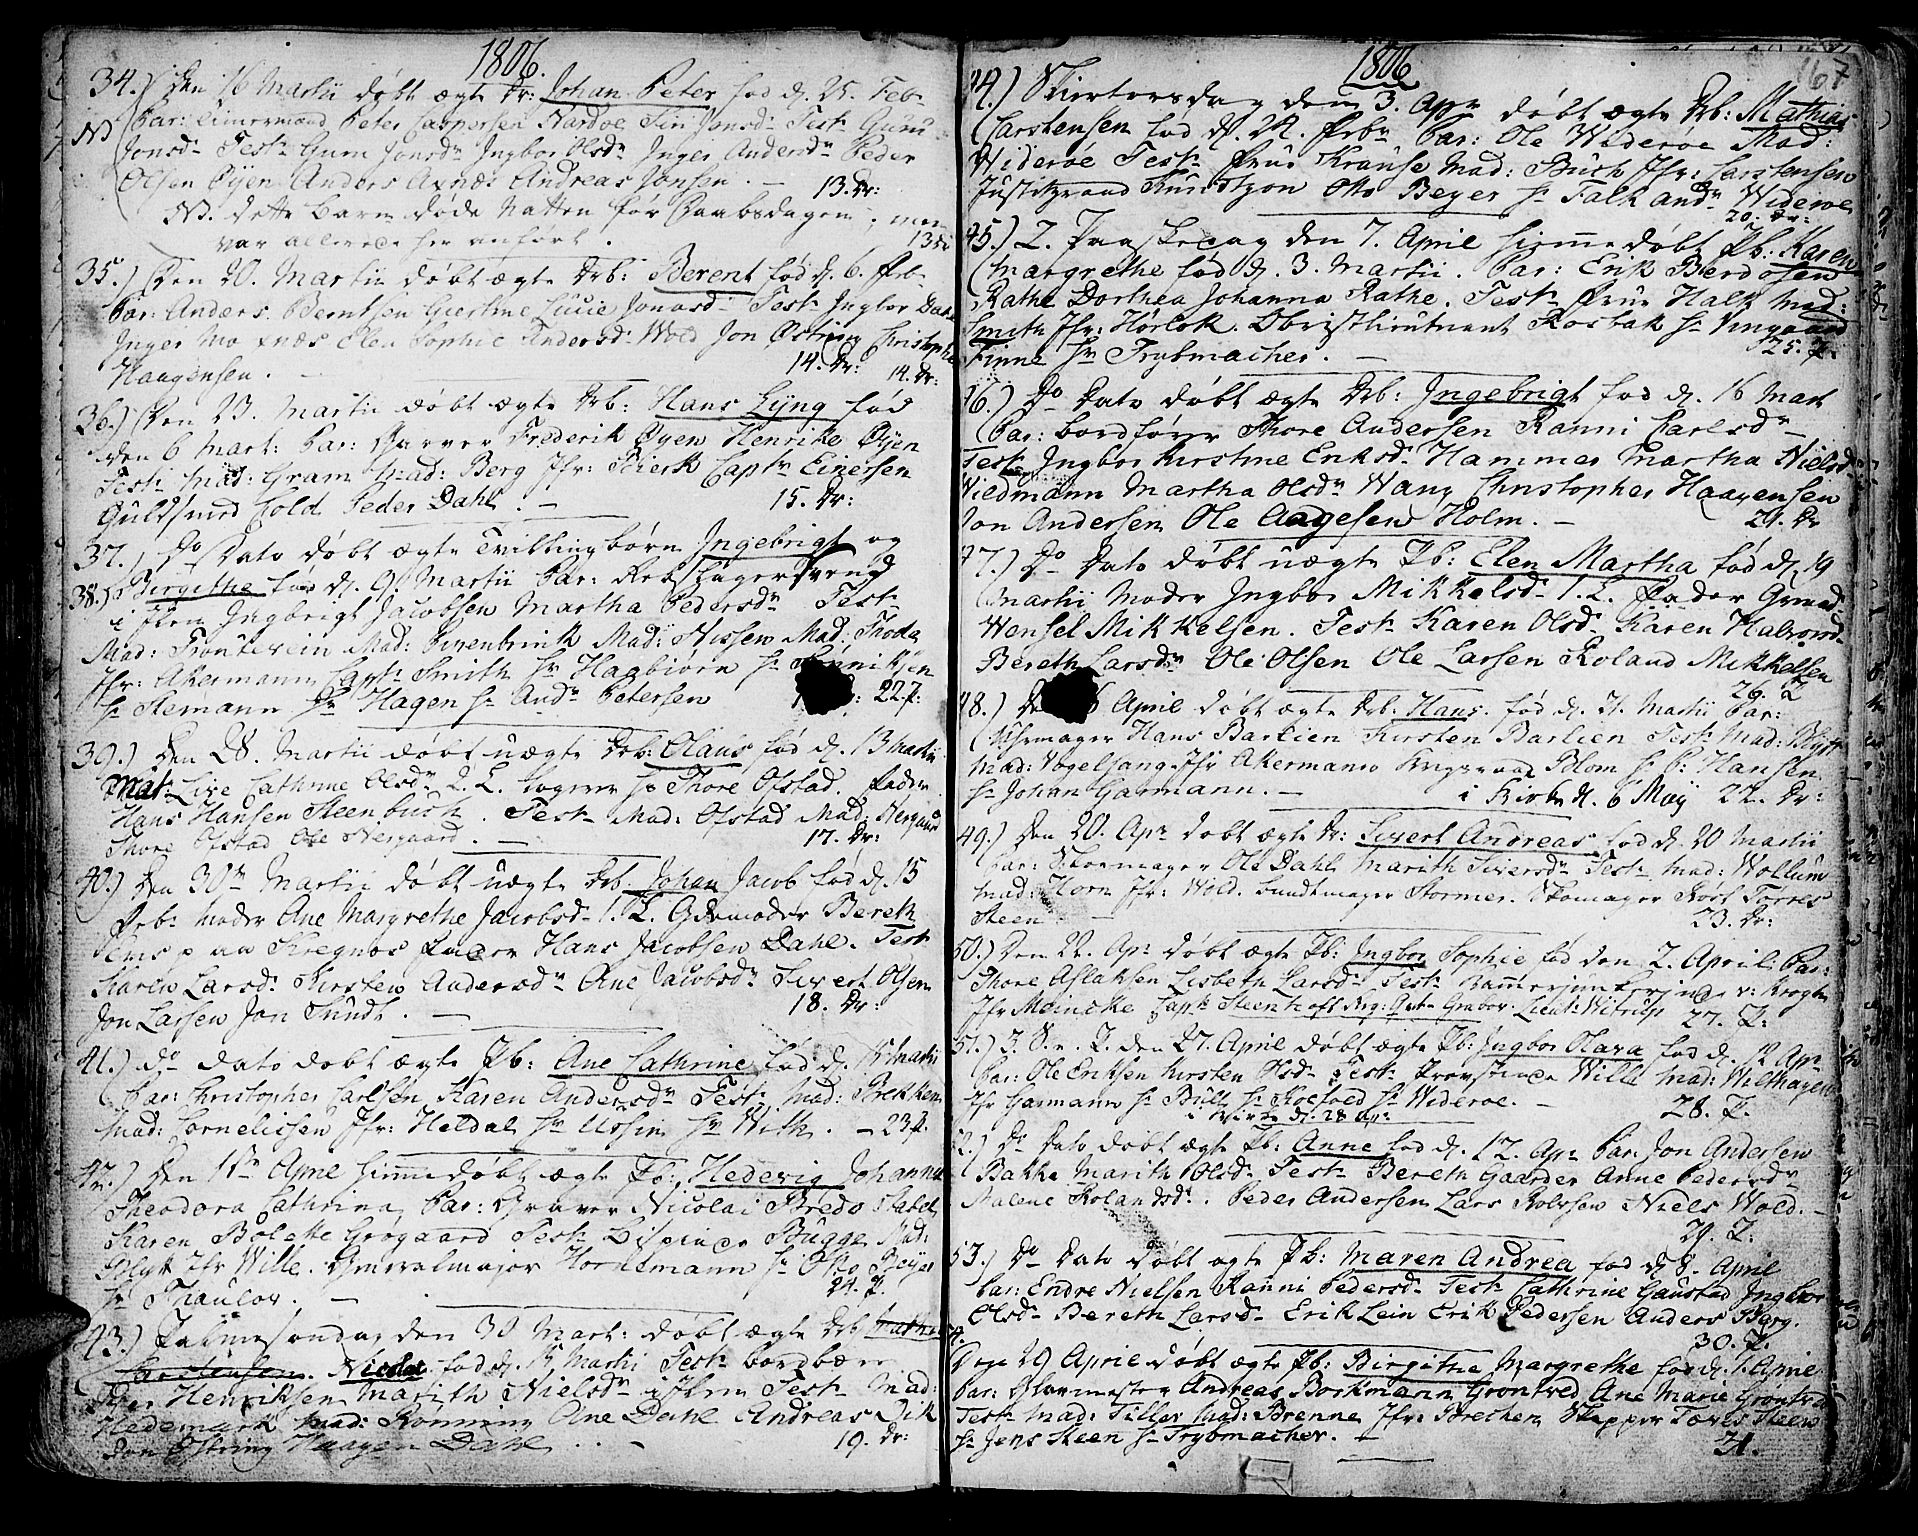 1806.
34.) Den 16 Martii døbt ægte Dr: Johan Peter fød d. 25. Feb.
Par: Timermand Peter Caspersen Nardoe Siri Jonsd. Test. Guru
Jonsd. Test. Guru Jonsdr Ingbor Olsdr Inger Andersdr Peder
Olsen Øyen Anders Axnæs Andreas Jonsen. – 13. Dr:
NB. dette Barn døde Natten før Daabsdagen, men
var allerede her anført. 13 Dr
35.) Den 20. Martii døbt ægte Drb: Berent fød d. 6. Febr.
Par: Anders Berntsen Giertine Lucie Jonasd. Test. Ingbor Dahl
Inger Moxnæs Elen Sophie Andersd. Wold Jon Østring Christopher
Haagensen. – 14. Dr: 14. Dr:
36.) Den 23. Martii døbt ægte Drb: Hans Lÿng fød
den 6 Mart: Par: Garver Frederik Øyen Henrike Øyen
Test. Mad: Gram Mad: Berg Jfr: Stierk Captn Einersen
Guldsmed Cold Peder Dahl. – 15. Dr:
37.) Do Dato døbt ægte Tvillingbørn Ingebrigt og
38.) Birgithe fød d. 9. Martii Par: Rebslagersvend
i Ilen Ingbrigt Jacobsen Martha Pedersdr Test.
Mad: Trontvein Mad: Finenbrink Mad: Nissen Mad: Thode
Jfr: Akermann Captn Smith Hr Hagbiørn Hr
Hr Hemann Hr Hagen Hr Andr Petersen : 22 P.
39.) Den 28. Martii døbt uægte Drb: Olaus fød d. 13 Martii
Mat: Live Cathrine Olsdr 2. L. Logerer hos Thore Ofstad. Fader
Hans Hansen Steenbuch. Test. Mad: Ofstad Mad: Nergaard
Thore Ofstad Ole Nergaard. – 17. Dr:
40.) Den 30te Martii døbt uægte Drb Johan Jacob fød d. 15
Febr. Moder Ane Margrethe Jacobsd. 1. L. Gdemoder Bereth
Iens p aa Kregnos Fader Hans Jacobsen Dahl. Test.
Karen Larsd. Kirsten Andersdr Ane Jacobsdr Sivert Olsen
Jon Larsen Jon Sundt. – 18. Dr:
41.) do dato døbt ægte Pb: Ane Cathrine fød d. 15 Martii
Par: Christopher Carlsen Karen Andersdr Test. Mad: Brekken
Mad: Cornelisen Jfr: Heldal Hr Ussin Hr With. – 23 P.
42.) Den 1ste April hiemmedøbt ægte Pb: Hedevig Johanna
Theodora Cathrina Par: Graver Nicolai Bredo Stabel
Karen Bolette Grøgaard Test. Bispinde Bugge Mad:
Blyt Jfr Wille. Generalmajor Hornemann Hr Otto Beyer
Hr Thaulov. – 24. P.
43.) Palmesøndag den 30 Mart: døbt ægte Drb Mathias
Carstensen. Nicolai fød d. 15 Martii Test. bordbær
Peer Henriksen Marith Nielsdr i Ilen Test. Mad:
Hedemark Mad: Rønning Ane Dahl Andreas Vik
Jon Østring Haagen Dahl. – 19. Dr:
1806 167
44.) Skiertorsdag den 3. Apr. døbt ægte Drb: Mathias
Carstensen fød d. 21. Febr. Par: Ole Widerøe Mad:
Widerøe Test. Frue Krause Mad: Buch Jfr: Carstensen
Justitzraad Knudtzon Otto Beyer Hr Falk Andr Widerøe
20. Dr:
45.) 2. Paaskedag den 7. April hiemmedøbt Pb: Karen
Margrethe fød d. 3. Martii. Par: Erik Berdosen
Rathe Dorthea Johanna Rathe. Test. Frue Halk Mad:
Smith Jfr: Hørlok. Obristlieutnant Rosbak Hr Vingaard
Finne Hr Trybmacher. – 25. P.
46.) Do Dato døbt ægte Drb: Ingebrigt fød d. 16 Mart
Par: bordfører Thore Andersen Ranni Carlsdr
Test. Ingbor Kirstine Eriksd. Hammer Martha Nielsd.
Wiedmann Martha Olsdr Wang Christopher Haagensen
Jon Andersen Ole Aagesen Holm. – 21. Dr
47.) Do Dato døbt uægte Pb: Elen Martha fød d. 19
Martii Moder Ingbor Mikkelsd. 1. L. Fader Grenad.
Wensel Mikkelsen. Test. Karen Olsd. Karen Halvorsd.
Bereth Larsdr Ole Olsen Ole Larsen Roland Mikkelsen
26. P.
48.) 6 April døbt ægte Drb. Hans. fød d. 31. Martii Par:
Uhrmager Hans Barlien Kirsten Barlien Test. Mad: Blytt
Mad: Vogelsang Jfr Akermann Krigsraad Blom Hr P: Hansen
Hr Johan Garmann. – i Kirken d. 6 May 22. Dr:
49.) Den 20. Apr. døbt ægte Dr: Sivert Andreas fød d. 20 Martii
Par: Skoemager Ole Dahl Marith Siversdr Test. Mad: Wollum
Mad: Horn Jfr: Wold. Bundtmager Stormer. Skomager Rost Torres
Steen – 23. Dr:
50.) Den 22. Apr. døbt ægte Pb: Ingbor Sophie fød den 2. April: Par:
Thore Aslaksen Lisbeth Larsd. Test. Kammerjunkerinde v: Krogh
Jfr Meincke Captn Steenhoff Reg: Qvt Grabov Lieut: Witrup
27. P:
51.) 3. S. e. P. den 27. April døbt ægte Pb: Ingbor Olava fød d. 12 Apr
Par: Ole Eriksen Kirsten Olsd. Test. Provstinde Wille Mad: Wilhagen
Jfr Garmann Hr Bull Hr Koefoed Hr Widerøe. – 28. P.
i Kirk d. 28 Apr:
52.) Do Dato døbt ægte Pb: Anne fød d. 12. Apr Par: Jon Andersen
Bakke Marith Olsd. Test. Bereth Gaarder Anne Pedersdr
Malene Rolandsdr. Peder Andersen Lars Rolvsen Niels Wold. –
29. P.
53.) Do Dato døbt ægte Pb: Maren Andrea fød d. 8. April
Par: Endre Nielsen Ranni Pedersd. Test. Cathrine Gaustad Ingbor
Olsd. Bereth Larsd. Erik Lein Erik Pedersen Anders Berg.
30. P.
Den 29 April døbt ægte Pb: Birgithe Margrethe fød d. 1. April
Par: Glarmester Andreas Borkmann Grontved Ane Marie Grontved
Test. Mad: Tiller Mad: Brenne Jfr: Brecher Skipper Tøres Steen
Hr Jens Steen Hr Trybmacher. – 31.